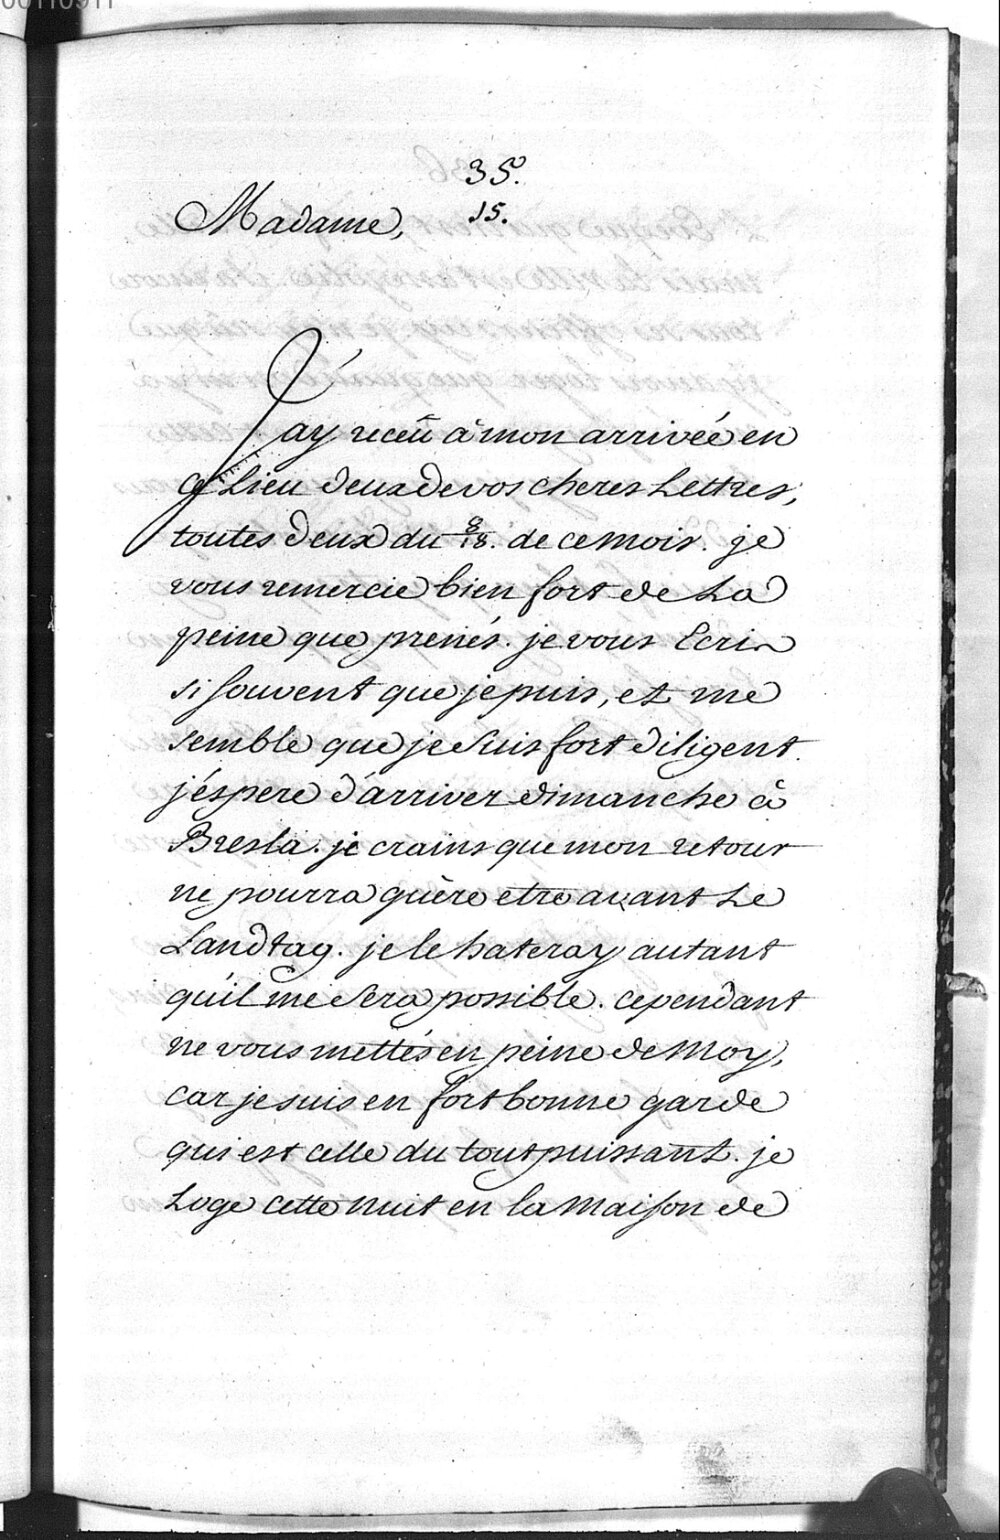 00110911
35.
15.
Madame,
J'ay receü à mon arrivée en
ce Lieu deux de vos cheres Lettres,
toutes deux du 8/18. de ce mois. je
vous remercie bien fort de La
peine que prenés. je vous Ecris
si souvent que je puis, et me
semble que je suis fort diligent.
j'éspere d'arriver dimanche à
Bresla. je crains que mon retour
ne pourra guère etre avant Le
Landtag. je le hateray autant
qu'il me sera possible. cependant
ne vous mettés en peine de Moy,
car je suis en fort bonne garde
qui est celle du tout puissant. je
Loge cette nuit en la Maison de